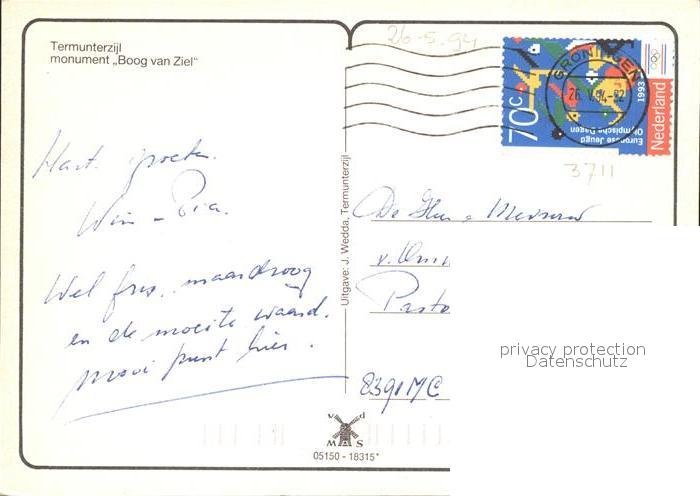 Termunterzijl
monument „Boog van Ziel“
26-5.94
GRONINGEN
26. V.94-
70c
Europese Jeugd
Olympische Dagen
1993
Nederland
3711
Hart. groeten.
Wim - Pia.
Wel fris, maar droog
en de moeite waard.
mooi punt hier.
Uitgave: J. Wedda, Termunterzijl
De Heer + Mevrouw
v.
Pasto
8391 MC
v d
M S
05150 - 18315*
privacy protection
Datenschutz